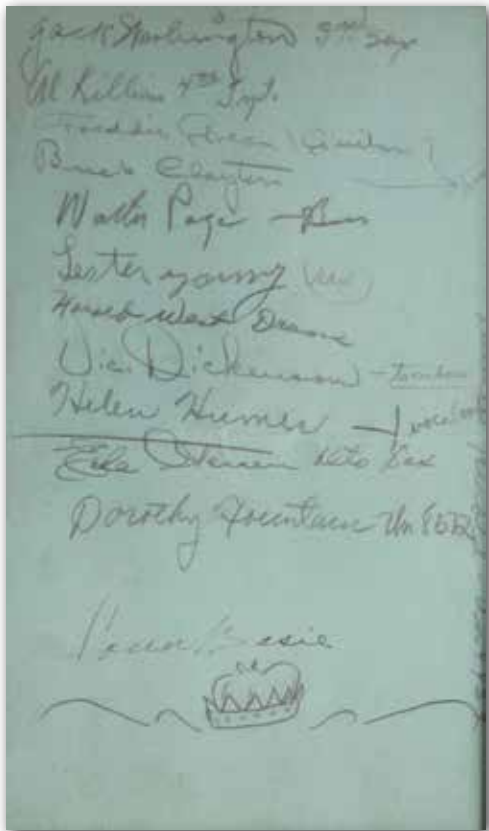 Jack Washington 3rd Sax
Al Killian 4th Trpt.
Freddie Green (Guitar)
Buck Clayton
Walter Page - Bass
Lester Young
Harold West Drums
Vic Dickenson - Trombone
Helen Humes - vocalist
Alto Sax
Dorothy Fountain Un 8552
Count Basie